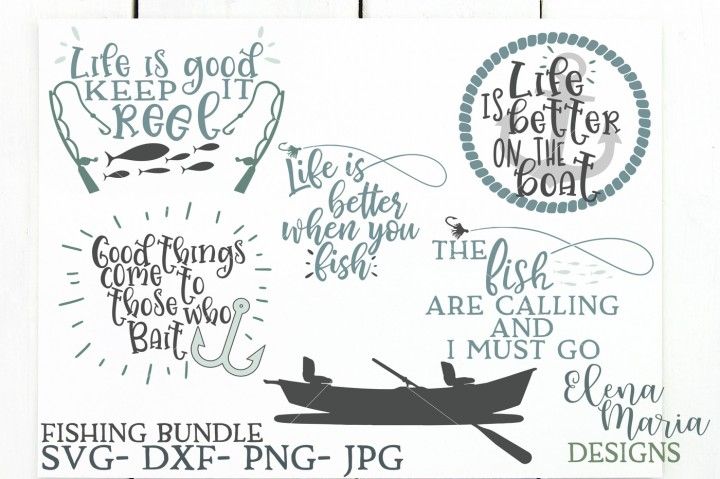 Life is good
KEEP IT
REEL
Life
IS better
ON THE
boat
Life is
better
when you
fish
Good things
come to
those who
Bait
THE
fish
ARE CALLING
AND
I MUST GO
FISHING BUNDLE
SVG- DXF- PNG- JPG
Elena
Maria
DESIGNS